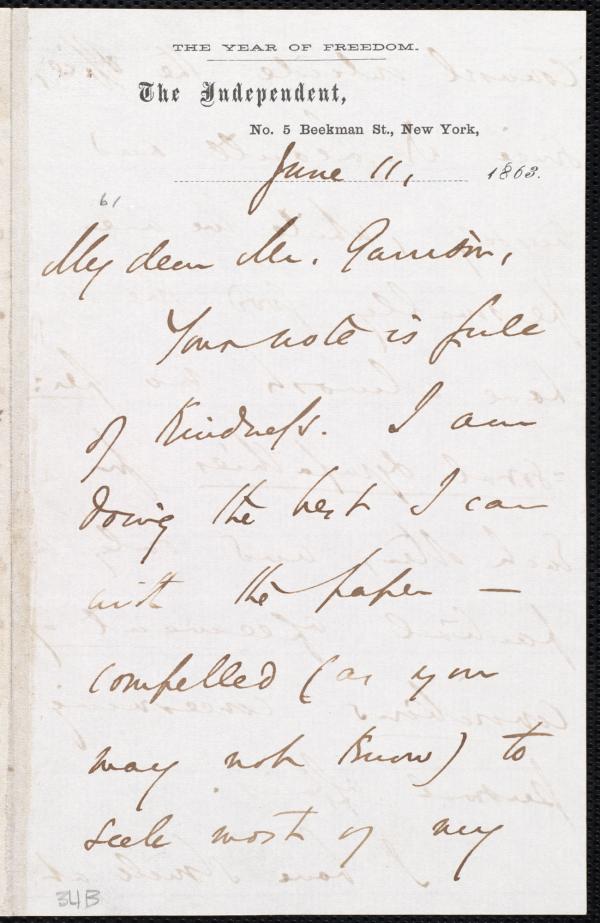 THE YEAR OF FREEDOM.
The Independent,
No. 5 Beekman St., New York,
June 11, 1863.
61
My dear Mr. Garrison,
Your note is full
of kindness. I am
doing the best I can
with the paper —
compelled (as you
may not know) to
seek most of my
34B